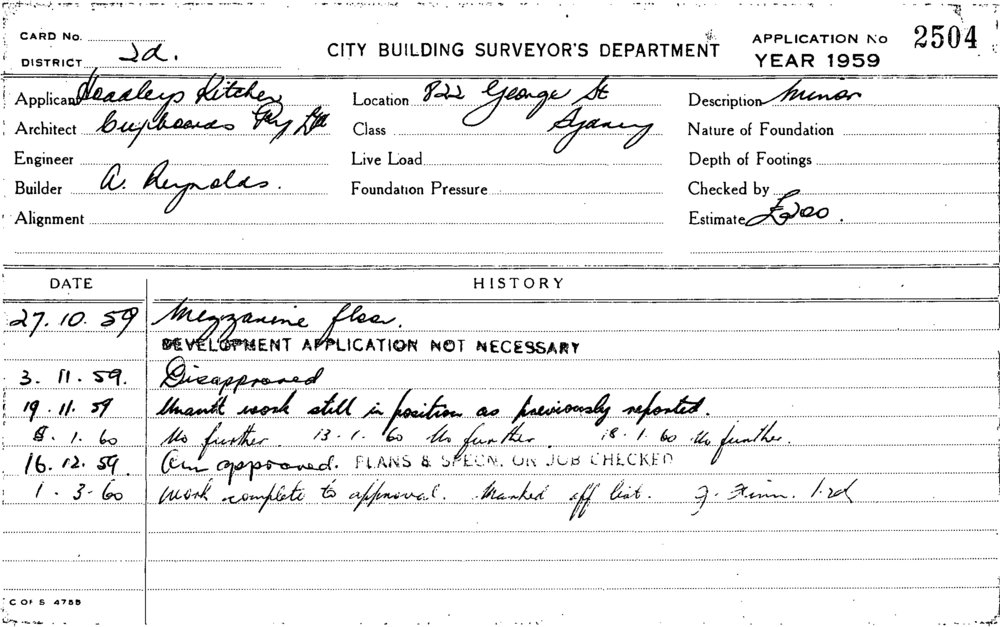 CARD No.
DISTRICT 2d.
CITY BUILDING SURVEYOR'S DEPARTMENT
APPLICATION No 2504
YEAR 1959
Applicant Headleys Kitchen
Location 822 George St
Description Minor
Architect Cupboards Pty Ltd
Class Sydney
Nature of Foundation
Engineer
Live Load
Depth of Footings
Builder A. Reynolds.
Foundation Pressure
Checked by
Alignment
Estimate £200.
DATE HISTORY
27.10.59 Mezzanine floor.
DEVELOPMENT APPLICATION NOT NECESSARY
3.11.59. Disapproved
19.11.59 Unauth work still in position as previously reported.
8.1.60 No further. 13.1.60 No further. 18.1.60 No further.
16.12.59. approved. PLANS & SPECN. ON JOB CHECKED
1.3.60 Work complete to approval. Marked off list. J. Finn.
C OF S 4755